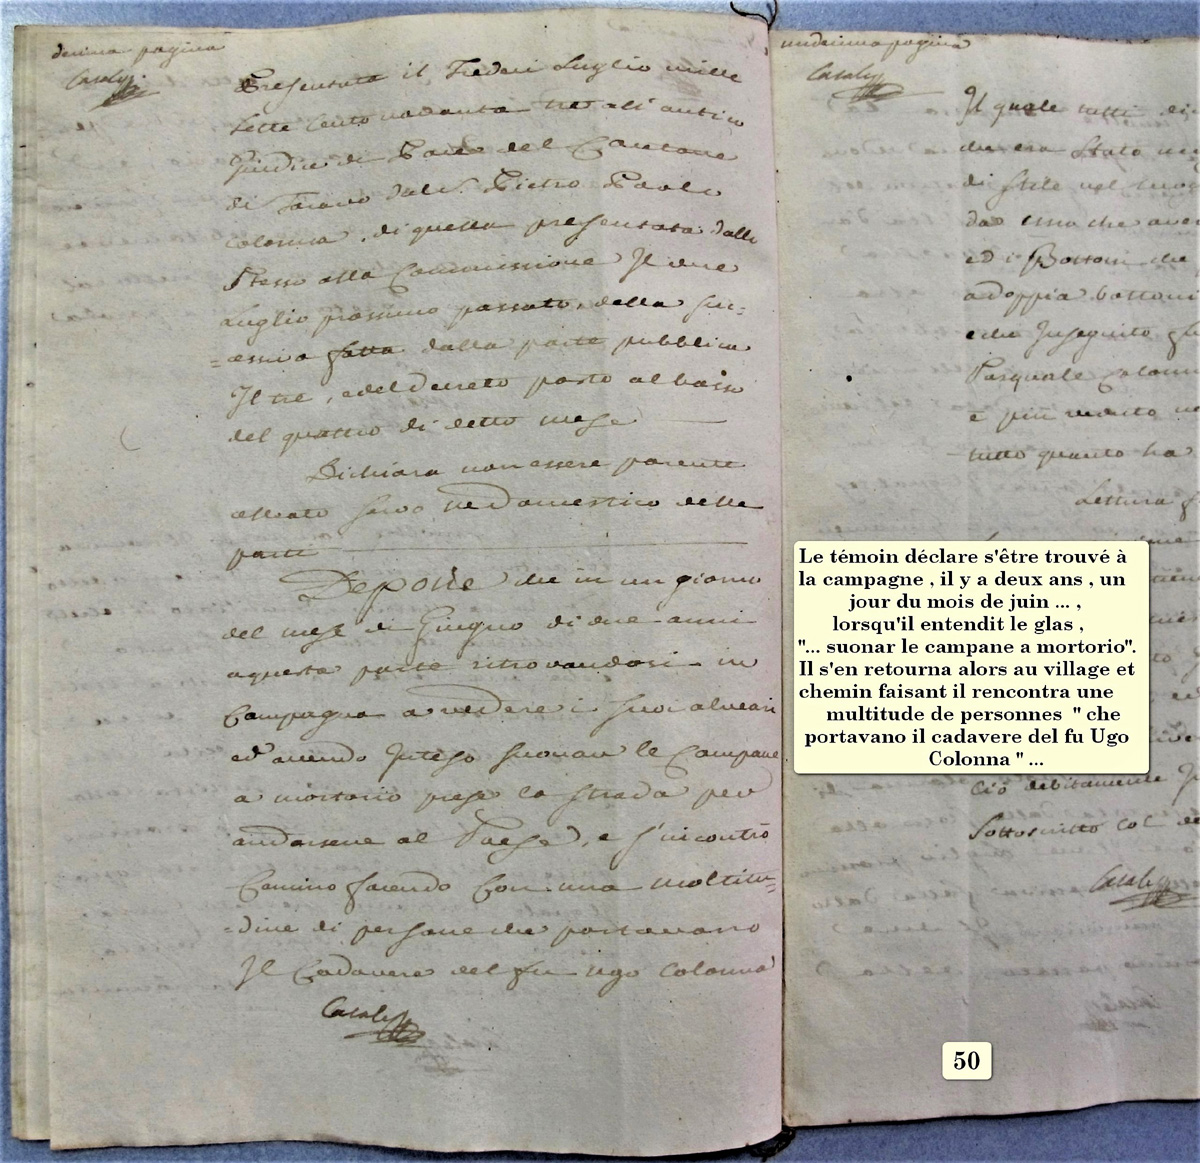 decima pagina
Casalij
Presentata il Tredeci Luglio mille
Sette Cento novanta tre all'antico
Giudice di Pace del Cantone
di Tavano dal S. Pietro Paolo
Colonna, di quella presentata dallo
Stesso alla Commissione Il due
Luglio prossimo passato, della suc=
=cessiva fatta dalla parte pubblica
Il tre, e del Decreto posto al basso
del quattro di detto mese
Dichiara non essere parente
alleato servo ne domestico delle
parti
Depone che in un giorno
del mese di Giugno di due anni
a questa parte ritrovandosi in
Campagna a vedere i suoi alveari
ed avendo Inteso suonar le Campane
a mortorio prese la strada per
andarsene al Paese, e s'incontrò
Camino facendo Con una moltitu=
=dine di persone che portavano
Il Cadavere del fu Ugo Colonna
Casalij
undecima pagina
Casalij
Il quale tutti di
che era stato
di stile nel
da una che
ed i Bottoni che
a doppia botton
e che Inseguito
Pasquale Colonn
e più veduto
tutto quanto ha
Lettura
Le témoin déclare s'être trouvé à
la campagne , il y a deux ans , un
jour du mois de juin ... ,
lorsqu'il entendit le glas ,
"... suonar le campane a mortorio".
Il s'en retourna alors au village et
chemin faisant il rencontra une
multitude de personnes " che
portavano il cadavere del fu Ugo
Colonna " ...
Ciò debitamente
Sottoscritto Col
Casalij
50